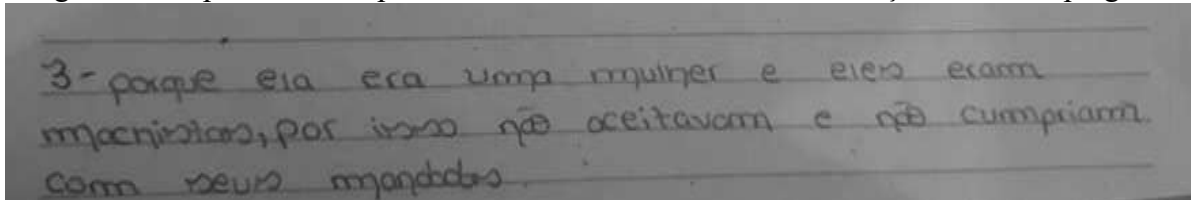 3- porque ela era uma mulher e eles eram
machistas, por isso não aceitavam e não cumpriam
com seus mandados.